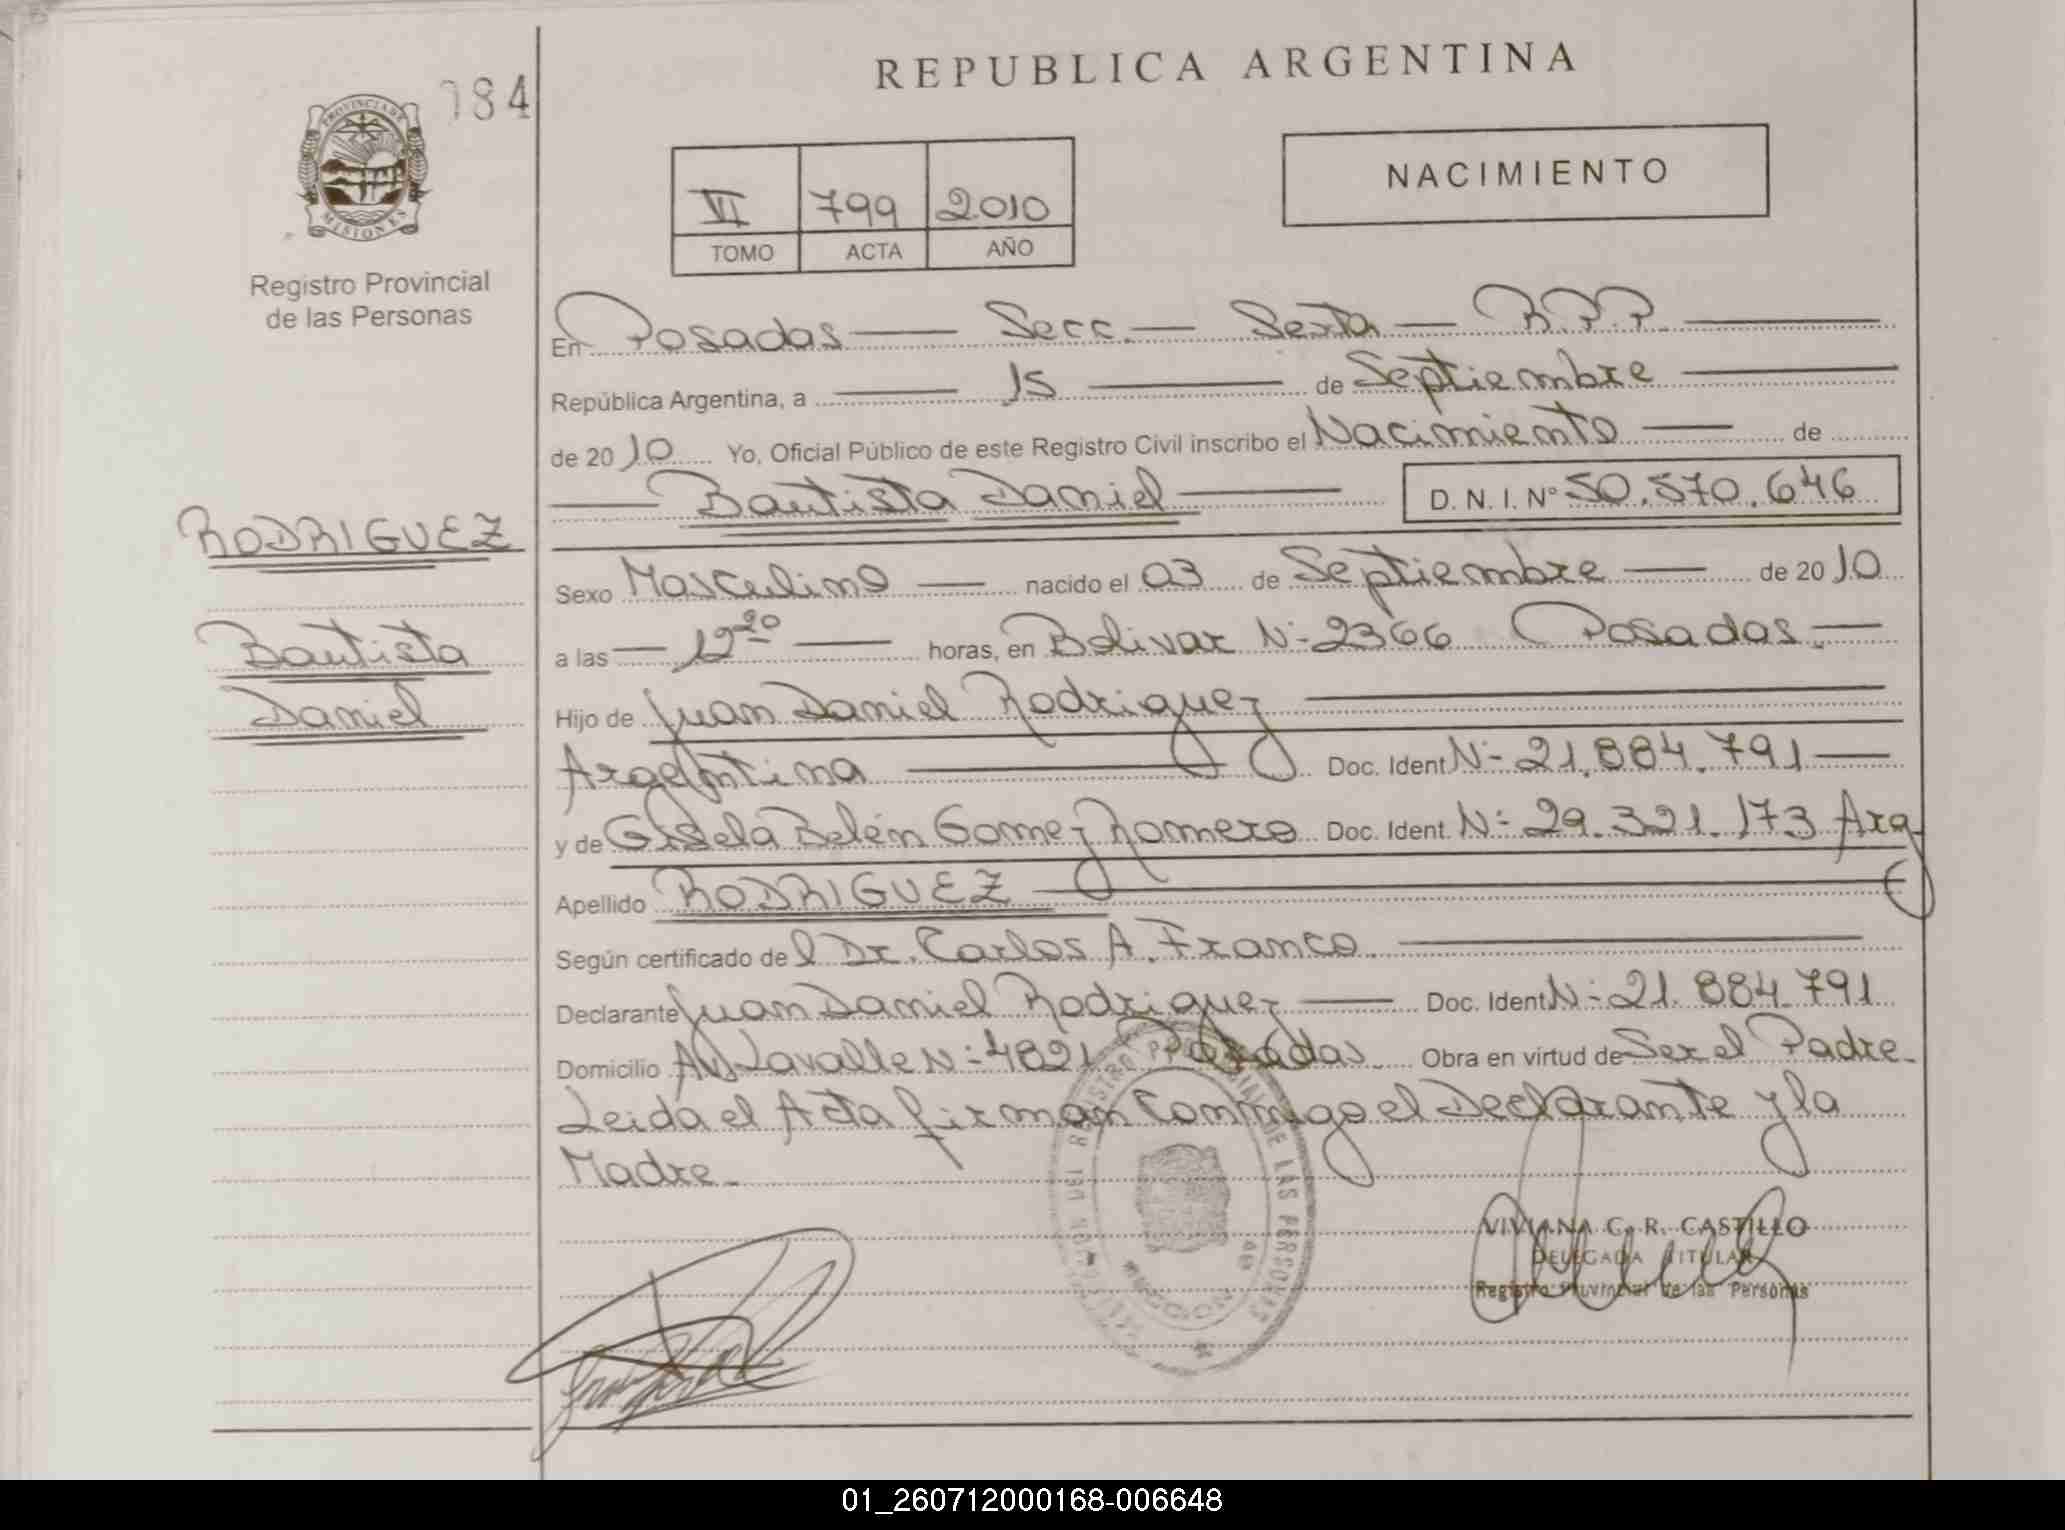 784
REPUBLICA ARGENTINA
PROVINCIA DE
MISIONES
Registro Provincial
de las Personas
VI 799 2010
TOMO ACTA AÑO
NACIMIENTO
En Posadas — Secc. — Sexta — R.P.P. —
República Argentina, a — 15 — de Septiembre —
de 2010 Yo, Oficial Público de este Registro Civil inscribo el Nacimiento — de
— Bautista Daniel — D. N. I. Nº 50.570.646
RODRIGUEZ
Bautista
Daniel
Sexo Masculino — nacido el 03 de Septiembre — de 2010
a las — 12 20 — horas, en Bolivar Nº 2366 Posadas. —
Hijo de Juan Daniel Rodriguez —
Argentina — Doc. Ident Nº 21.884.791 —
y de Gisela Belén Gomez Romero Doc. Ident. Nº 29.321.173 Arg
Apellido RODRIGUEZ —
Según certificado del Dr. Carlos A. Franco. —
Declarante Juan Daniel Rodriguez — Doc. Ident Nº 21.884.791
Domicilio Av. Lavalle Nº 4821 Posadas. Obra en virtud de Ser el Padre.
Leida el Acta firman Conmigo el Declarante y la
Madre.
VIVIANA C. R. CASTILLO
DELEGADA TITULAR
Registro Provincial de las Personas
01_260712000168-006648